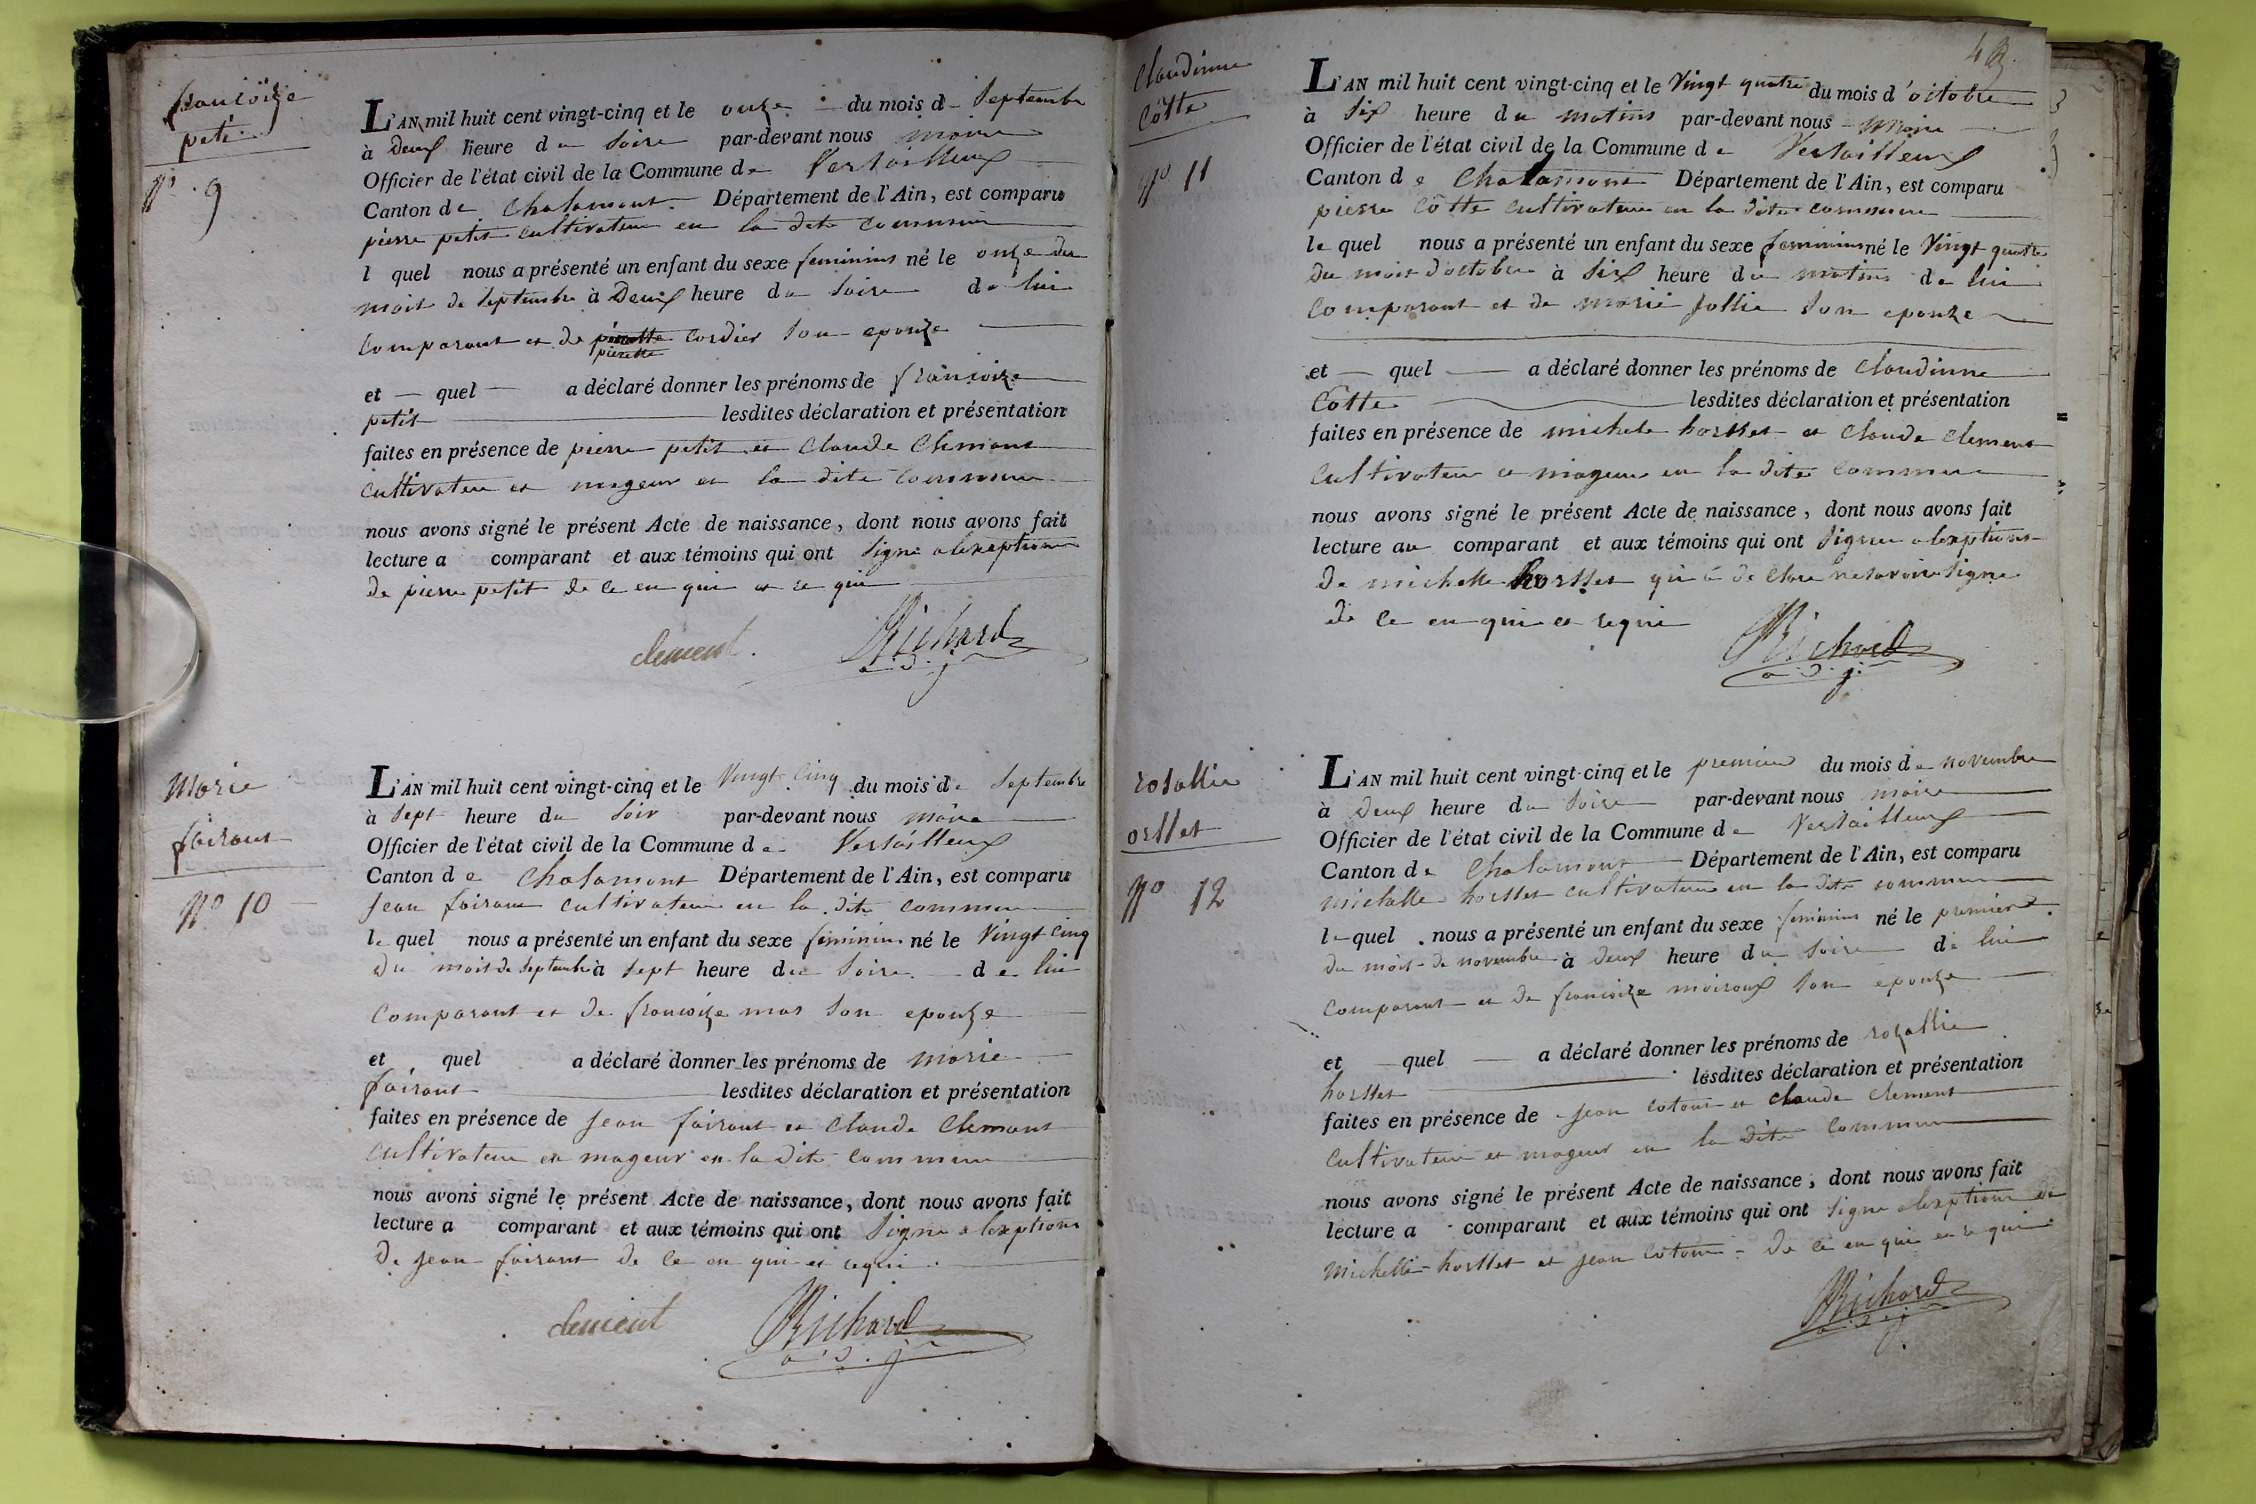 francoize
petit
N° 9
L'AN mil huit cent vingt-cinq et le onze du mois d septembre
à Deux heure du soire par-devant nous maire
Officier de l'état civil de la Commune de Versailleux
Canton de chalamont Département de l'Ain, est comparu
pierre petit cultivateur en la dite commune
l quel nous a présenté un enfant du sexe feminins né le onze du
mois de septembre à Deux heure du soire de lui
comparant et de pierrette cordier son epouze
pierette
et quel a déclaré donner les prénoms de francoize
petit lesdites déclaration et présentation
faites en présence de pierre petit et claude clement
cultivateur et mageur en la dite commune
nous avons signé le présent Acte de naissance, dont nous avons fait
lecture a comparant et aux témoins qui ont signe a lexeptions
de pierre petit de ce en qui et re qui
clement. Richard
a. d. j.
Marie
fairant
N° 10
L'AN mil huit cent vingt-cinq et le vingt cinq du mois de septembre
à sept heure du soir par-devant nous maire
Officier de l'état civil de la Commune de Versailleux
Canton de chalamont Département de l'Ain, est comparu
jean fairant cultivateur en la dite commune
le quel nous a présenté un enfant du sexe feminin né le vingt cinq
du mois de septembre à sept heure du soire de lui
comparant et de francoize mas son epouze
et quel a déclaré donner les prénoms de marie
fairant lesdites déclaration et présentation
faites en présence de jean fairant et claude clemant
cultivateur en mageur en la dite commune
nous avons signé le présent Acte de naissance, dont nous avons fait
lecture a comparant et aux témoins qui ont signe a lexptions
de jean fairant de ce en qui et requi
clement Richard
a. d. j.
claudinne
Côtte
N° 11
L'AN mil huit cent vingt-cinq et le vingt quatre du mois d'octobre
à six heure du matins par-devant nous maire
Officier de l'état civil de la Commune de Versailleux
Canton de chalamont Département de l'Ain, est comparu
pierre côtte cultivateur en la dite commune
le quel nous a présenté un enfant du sexe feminins né le vingt quatre
du mois d'octobre à six heure du matins de lui
comparant et de marie jollie son epouze
et quel a déclaré donner les prénoms de claudinne
Côtte lesdites déclaration et présentation
faites en présence de michele horsset et claude clement
cultivateur et mageur en la dite commune
nous avons signé le présent Acte de naissance, dont nous avons fait
lecture au comparant et aux témoins qui ont signe a lexptions
de michelle horsset qui a de clare ne savoire signe
de ce en qui et requi
Richard
a. d. j.
rosallie
orsset
N° 12
L'AN mil huit cent vingt-cinq et le premier du mois de novembre
à Deux heure du soire par-devant nous maire
Officier de l'état civil de la Commune de Versailleux
Canton de chalamont Département de l'Ain, est comparu
michelle horsset cultivateur en la dite commune
le quel nous a présenté un enfant du sexe feminins né le premier
du mois de novembre à deux heure du soire de lui
comparant et de francoize moiroux son epouze
et quel a déclaré donner les prénoms de rozallie
horsset lesdites déclaration et présentation
faites en présence de jean coton et claude clement
cultivateur et mageur en la dite commune
nous avons signé le présent Acte de naissance, dont nous avons fait
lecture a comparant et aux témoins qui ont signe a lexptions de
michelle horsset et jean coton de ce en qui et re qui
Richard
a. d. j.